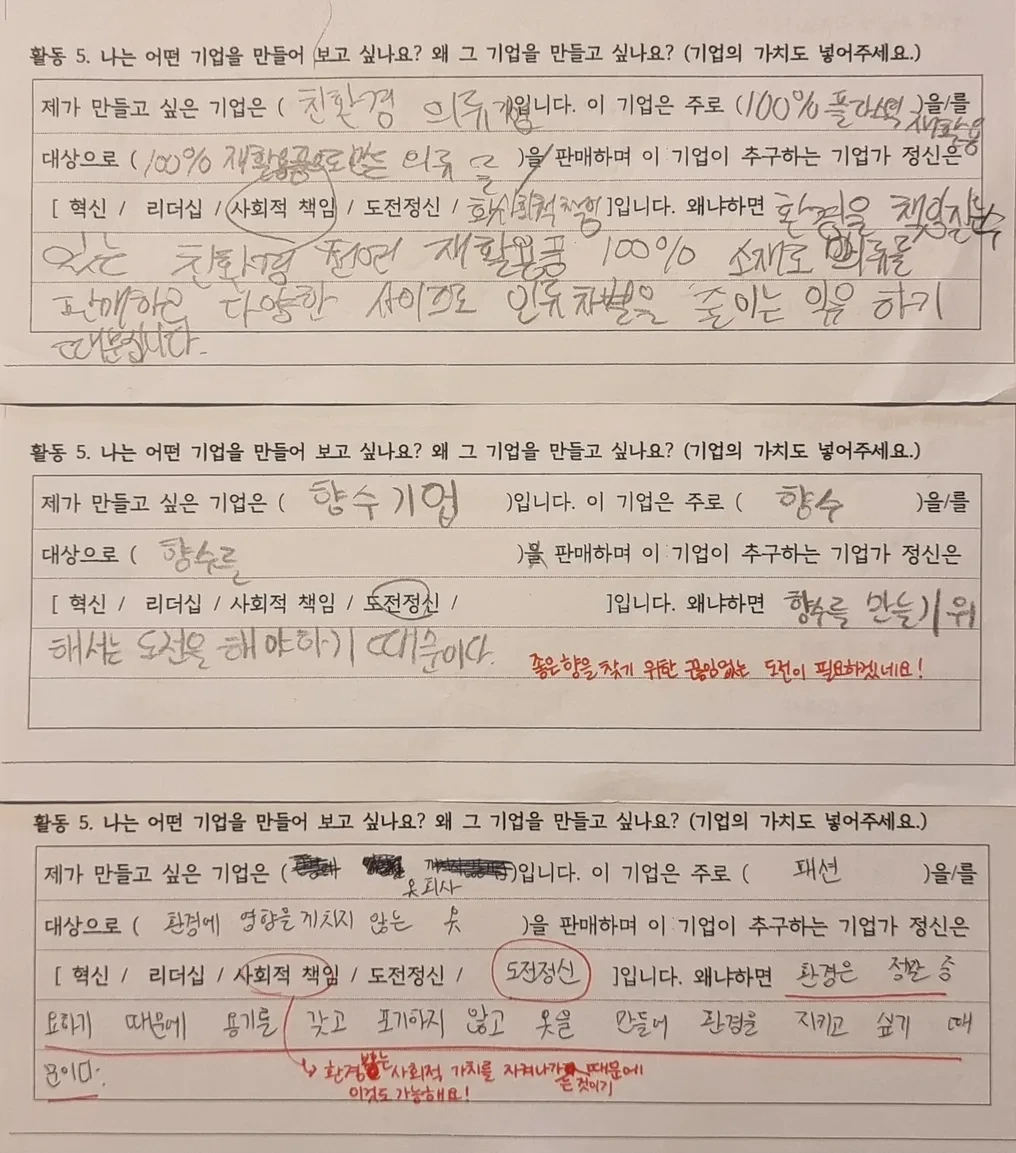 활동 5. 나는 어떤 기업을 만들어 보고 싶나요? 왜 그 기업을 만들고 싶나요? (기업의 가치도 넣어주세요.)
제가 만들고 싶은 기업은 ( 친환경 의류 기업입니다. 이 기업은 주로 (100% 플라스틱 재활용 )을/를
대상으로 (100% 재활용품으로 만든 의류 를 )을 판매하며 이 기업이 추구하는 기업가 정신은
[ 혁신 / 리더십 / 사회적 책임 / 도전정신 / 사회적 책임 ]입니다. 왜냐하면 환경을 책임질 수
있는 친환경 재활용품 100% 소재로 의류를
판매하고 다양한 사이즈로 인류 차별을 줄이는 일을 하기
때문입니다.
활동 5. 나는 어떤 기업을 만들어 보고 싶나요? 왜 그 기업을 만들고 싶나요? (기업의 가치도 넣어주세요.)
제가 만들고 싶은 기업은 ( 향수기업 )입니다. 이 기업은 주로 ( 향수 )을/를
대상으로 ( 향수를 )을 판매하며 이 기업이 추구하는 기업가 정신은
[ 혁신 / 리더십 / 사회적 책임 / 도전정신 / ]입니다. 왜냐하면 향수를 만들기위
해서는 도전을 해야하기 때문이다.
좋은향을 찾기 위한 끊임없는 도전이 필요하겠네요!
활동 5. 나는 어떤 기업을 만들어 보고 싶나요? 왜 그 기업을 만들고 싶나요? (기업의 가치도 넣어주세요.)
제가 만들고 싶은 기업은 ( 옷회사 )입니다. 이 기업은 주로 ( 패션 )을/를
대상으로 ( 환경에 영향을 끼치지 않는 옷 )을 판매하며 이 기업이 추구하는 기업가 정신은
[ 혁신 / 리더십 / 사회적 책임 / 도전정신 / 도전정신 ]입니다. 왜냐하면 환경은 정말 중
요하기 때문에 용기를 갖고 포기하지 않고 옷을 만들어 환경을 지키고 싶기 때
문이다.
↳ 환경 는 사회적 가치를 지켜나가는 것이기 때문에
이것도 가능해요!